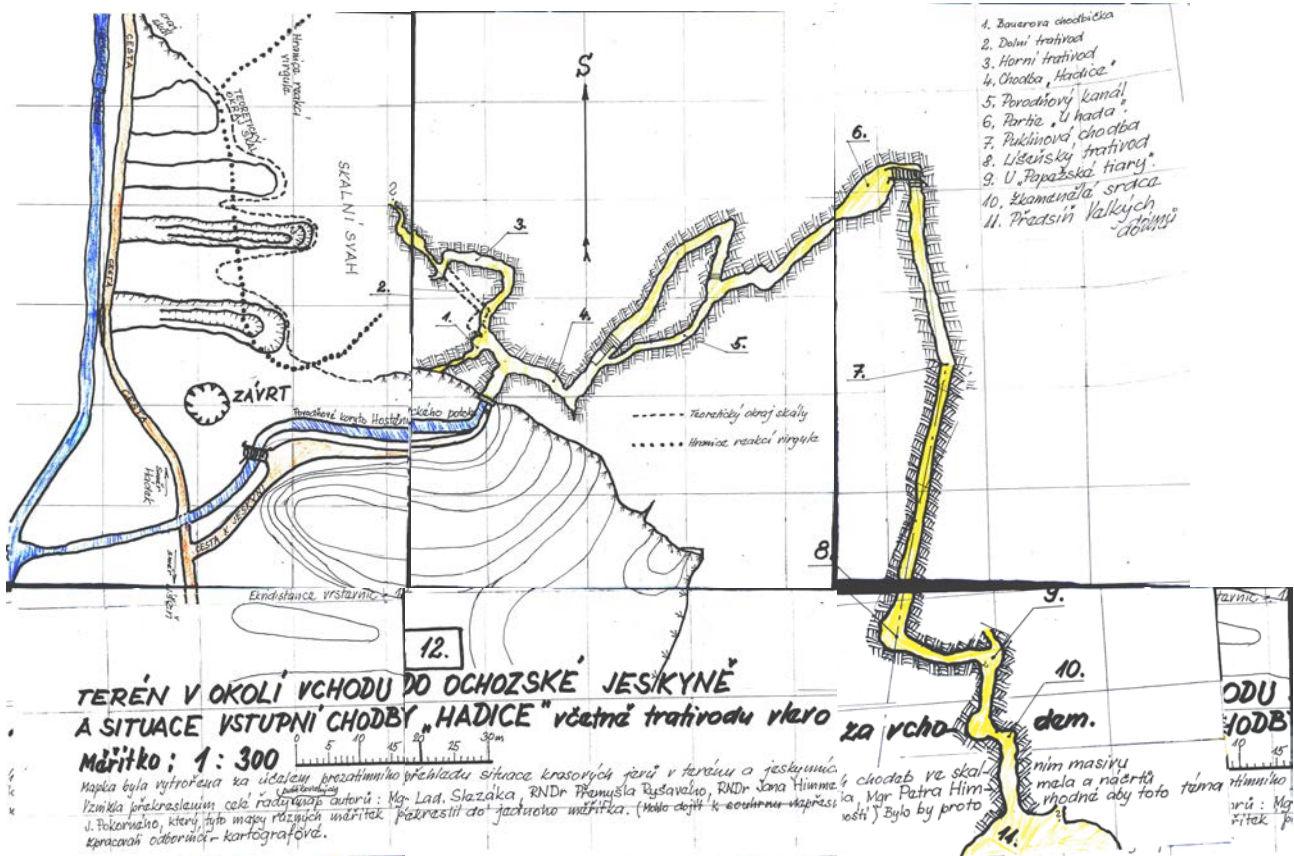 1. Bauerova chodbička
2. Dolní trativod
3. Horní trativod
4. Chodba „Hadice"
5. Povodňový kanál
6. Partie „U hada".
7. Puklinová chodba
8. Líšeňský trativod
9. U „Papežská tiary".
10. Zkamenělá srdce
11. Předsíň Velkých
dómů
CESTA
Hranice reakcí
virgule
TEORETICKÝ
OKRAJ SVAHU
SKALNÍ SVAH
S
6.
3.
2.
1.
4.
5.
7.
CESTA
ZÁVRT
CESTA
Povodňové koryto Hostěnického potoka
Teoretický okraj skály
Hranice reakcí virgule
Hádek
CESTA K JESKYNI
8.
Ekvidistance vrstevnic = 1
9.
12.
10.
TERÉN V OKOLÍ VCHODU DO OCHOZSKÉ JESKYNĚ
A SITUACE VSTUPNÍ CHODBY „HADICE" včetně trativodu vlevo za vchodem.
Měřítko: 1:300
0 5 10 15 20 25 30m
Mapka byla vytvořena za účelem prozatímního přehledu situace krasových jevů v terénu a jeskynních chodeb ve skalním masivu
Vznikla překreslením celé řady map autorů: Mg. Lad. Slezáka, RNDr Přemysla Ryšavého, RNDr Jana Himmela, Mgr Petra Himmela a náčrtů
J. Pokorného, který tyto mapy různých měřítek překreslil do jednoho měřítka. (Mohlo dojít k Bylo by proto vhodné aby toto téma
zpracovali odborníci - kartografové.
11.
ODU
HODBY
10 15